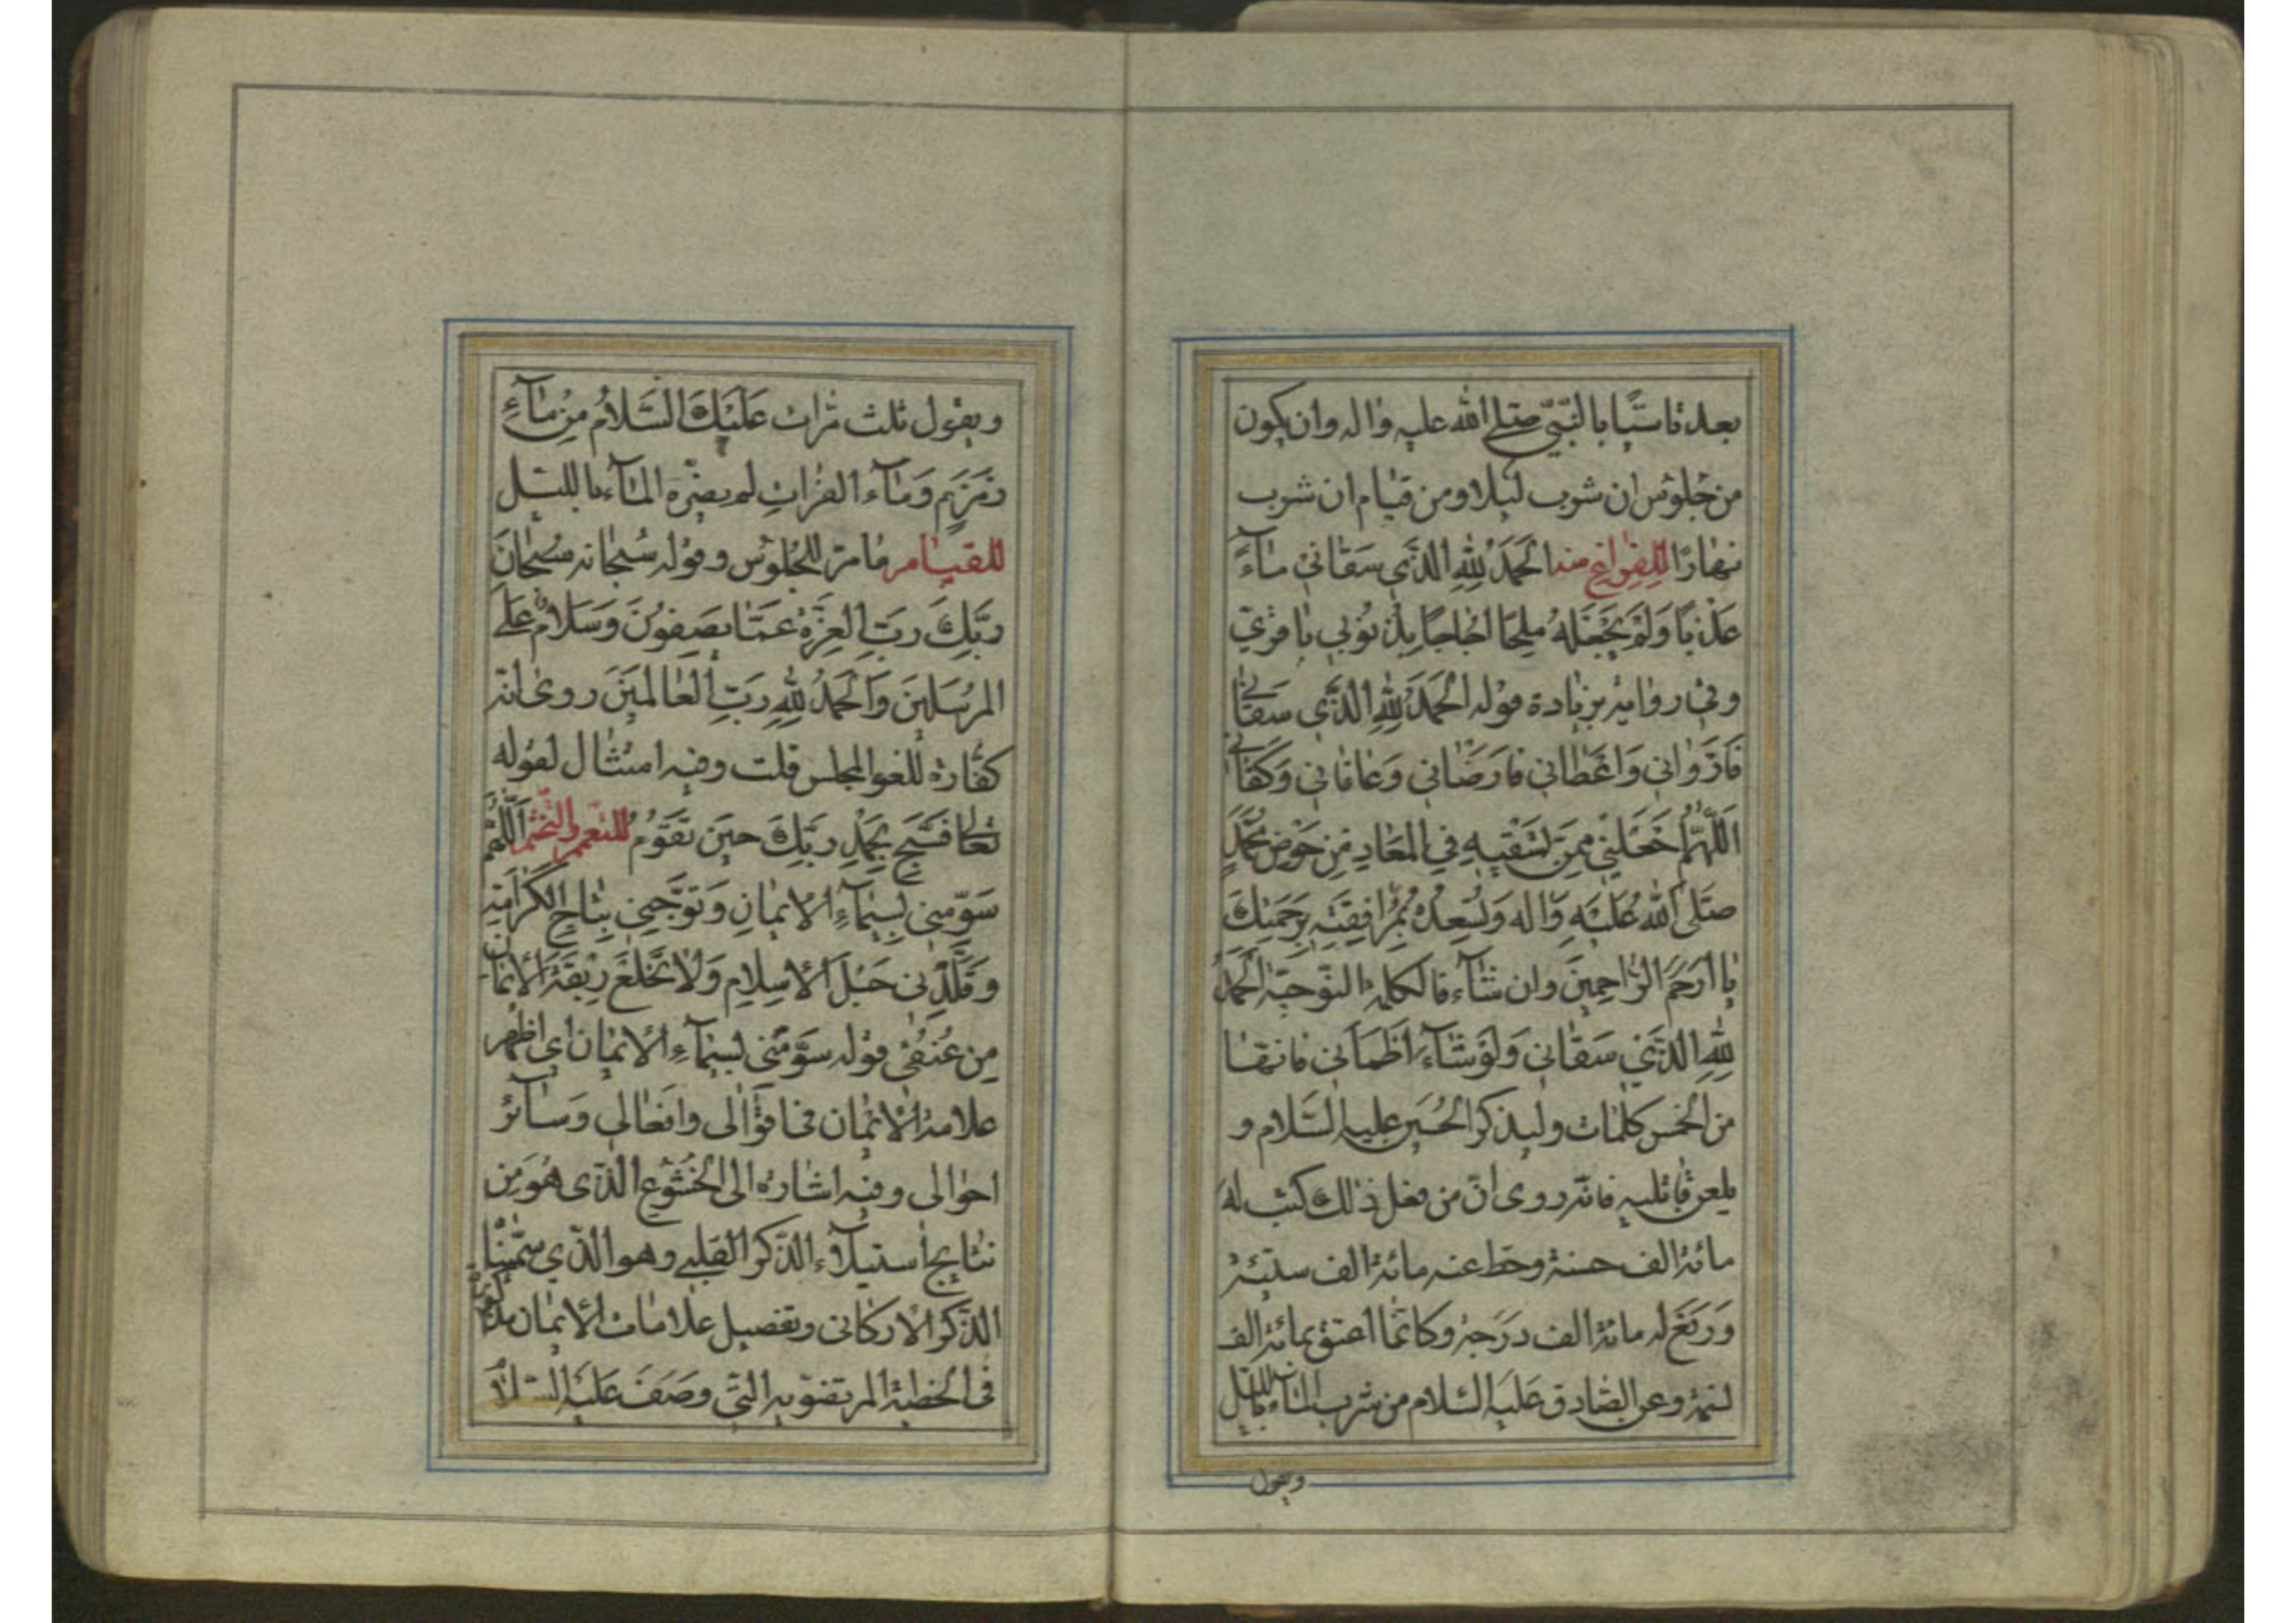 بعد تاسّيًا بالنّبيّ صلى الله عليه واله وان يكون
من جلوس ان شرب ليلا ومن قيام ان شرب
نهارًا للفراغ منه الحَمدُ لِلّهِ الّذي سَقاني ماءً
عَذبًا وَلَم يَجعَلهُ مِلحًا اُجاجًا بِذُنُوبي
وفي رواية بزيادة قوله الحَمدُ لِلّهِ الّذي سَقاني
فَاَروَاني وَاَعطاني فَاَرضاني وَعافاني وَكَفاني
اَللّهُمَّ اجعَلني مِمَّن تَسقيهِ في المَعادِ مِن حَوضِ مُحَمَّدٍ
صَلّى الله عَلَيهِ وَاله وَتُسعِدُهُ بِمُرافَقَتِهِ بِرَحمَتِكَ
يا اَرحَمَ الرّاحِمينَ وان شاء قال كلمة التوحية الحَمدُ
لِلّهِ الّذي سَقاني وَلَو شاءَ اَظمَأني فانها
من الخمس كلمات وليذكر الحُسَين عليه السَّلام و
يلعن قاتليه فانّه روى انّ من فعل ذلك كتب له
مائة الف حسنة وحط عنه مائة الف سيّئة
وَرَفَعَ له مائة الف دَرَجة وكانّما اعتق مائة الف
نسمة وعن الصّادق عَلَيه السّلام من شرب الماء بالليل
ويقول
ويقول ثلث مرّات عَلَيكَ السَّلامُ مِن مآءِ
زمزَم وَماء الفراتِ لم يضرّه المآء بالليل
للقيام ما مرّ للجُلوس وقوله سُبحانه سُبحانَ
رَبِّكَ رَبِّ العِزَّةِ عَمّا يَصِفُونَ وَسَلامٌ عَلَى
المُرسَلينَ وَالحَمدُ لِلّهِ رَبِّ العالَمينَ روى انّه
كفّارة للغو المجلس قلت وفيه امتثال لقوله
تعالى فَسَبِّح بِحَمدِ رَبِّكَ حينَ تَقُومُ للتعمم والتختم اَللّهُمَّ
سَوِّمني بِسيمآءِ الايمانِ وَتَوِّجني بِتاجِ الكَرامَةِ
وَقَلِّدني حَبلَ الاِسلامِ وَلا تَخلَع رِبقَةَ الايمانِ
مِن عُنُقي قوله سَوِّمني بسيمآءِ الايمان اي اظهر
علامة الايمان في اقوالى وافعالى وَسائر
احوالى وفيه اشارة الى الخُشُوع الّذى هُوَ مِن
نتايج استيلاء الذّكر القلبي وهو الّذي سمّيناه
الذّكر الاركانى وتفصيل علامات الايمان مذكورة
في الخطبة المرتضويه الّتي وصَفَ عَلَيه السّلام